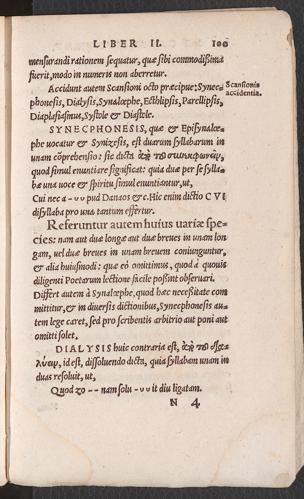 LIBER II. 100
mensurandi rationem sequatur, quæ sibi commodissima
fuerit, modo in numeris non aberretur.
Accidunt autem Scansioni octo præcipue: Synec=
phonesis, Dialysis, Synalœphe, Ecthlipsis, Parellipsis,
Diaplasiasmus, Systole & Diastole.
Scansionis
accidentia.
SYNECPHONESIS, quæ & Episynalœ=
phe uocatur & Synizesis, est duarum syllabarum in
unam cõprehensio: sic dicta ἀπὸ τοῦ συνεκφωνεῖν,
quod simul enuntiare significat: quia duæ per se sylla=
bæ una uoce & spiritu simul enuntiantur, ut,
Cui nec a - υυ pud Danaos &c. Hic enim dictio CVI
disyllaba pro una tantum effertur.
Referuntur autem huius uariæ spe=
cies: nam aut duæ longæ aut duæ breues in unam lon
gam, uel duæ breues in unam breuem coniunguntur,
& alia huiusmodi: quæ eò omittimus, quod à quouis
diligenti Poetarum lectione facile possint obseruari.
Differt autem à Synalœphe, quod hæc necessitate com
mittitur, & in diuersis dictionibus, Synecphonesis au=
tem lege caret, sed pro scribentis arbitrio aut poni aut
omitti solet.
DIALYSIS huic contraria est, ἀπὸ τοῦ δια=
λύειν, id est, dissoluendo dicta, quia syllabam unam in
duas resoluit, ut,
Quod zo - - nam solu - υυ it diu ligatam.
N 4